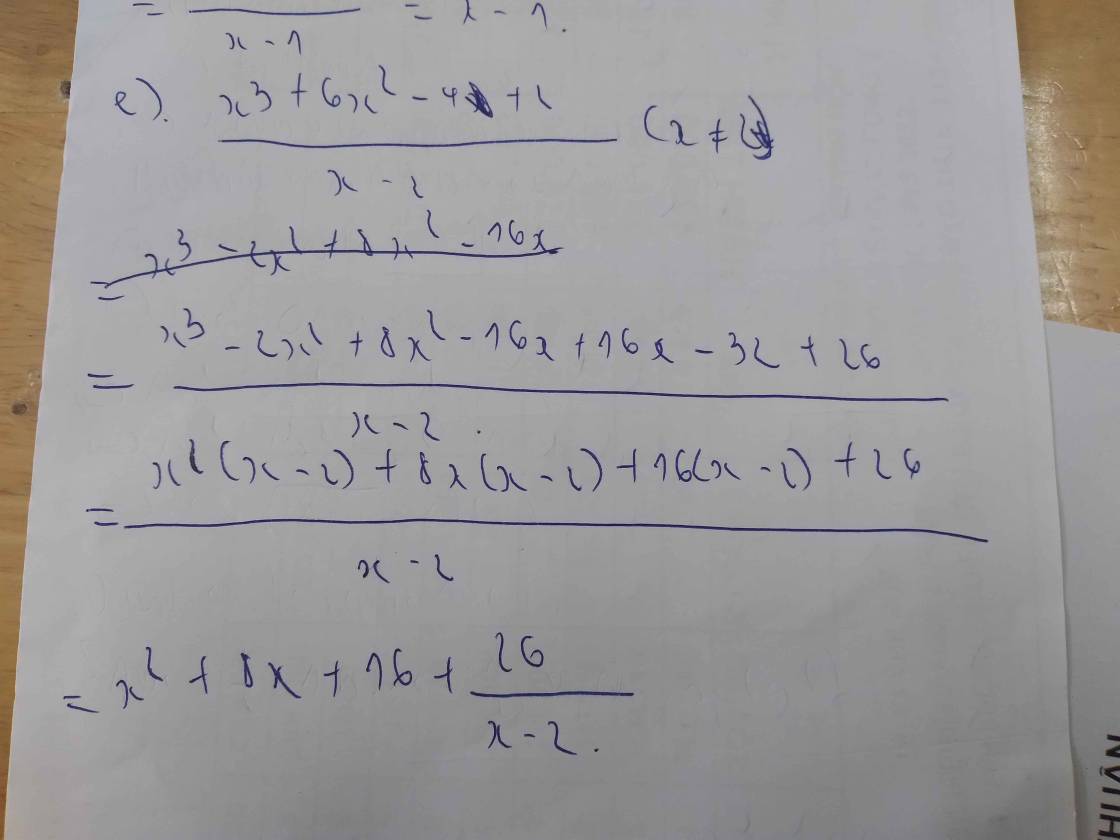 = x - 1 = x - 1.
e). x³ + 6x² - 4 + 2 (x ≠ 2)
x - 2
= x³ - 2x² + 8x² - 16x
x³ - 2x² + 8x² - 16x + 16x - 32 + 26
=
x - 2.
x²(x - 2) + 8x(x - 2) + 16(x - 2) + 26
=
x - 2
= x² + 8x + 16 + 26
x - 2.